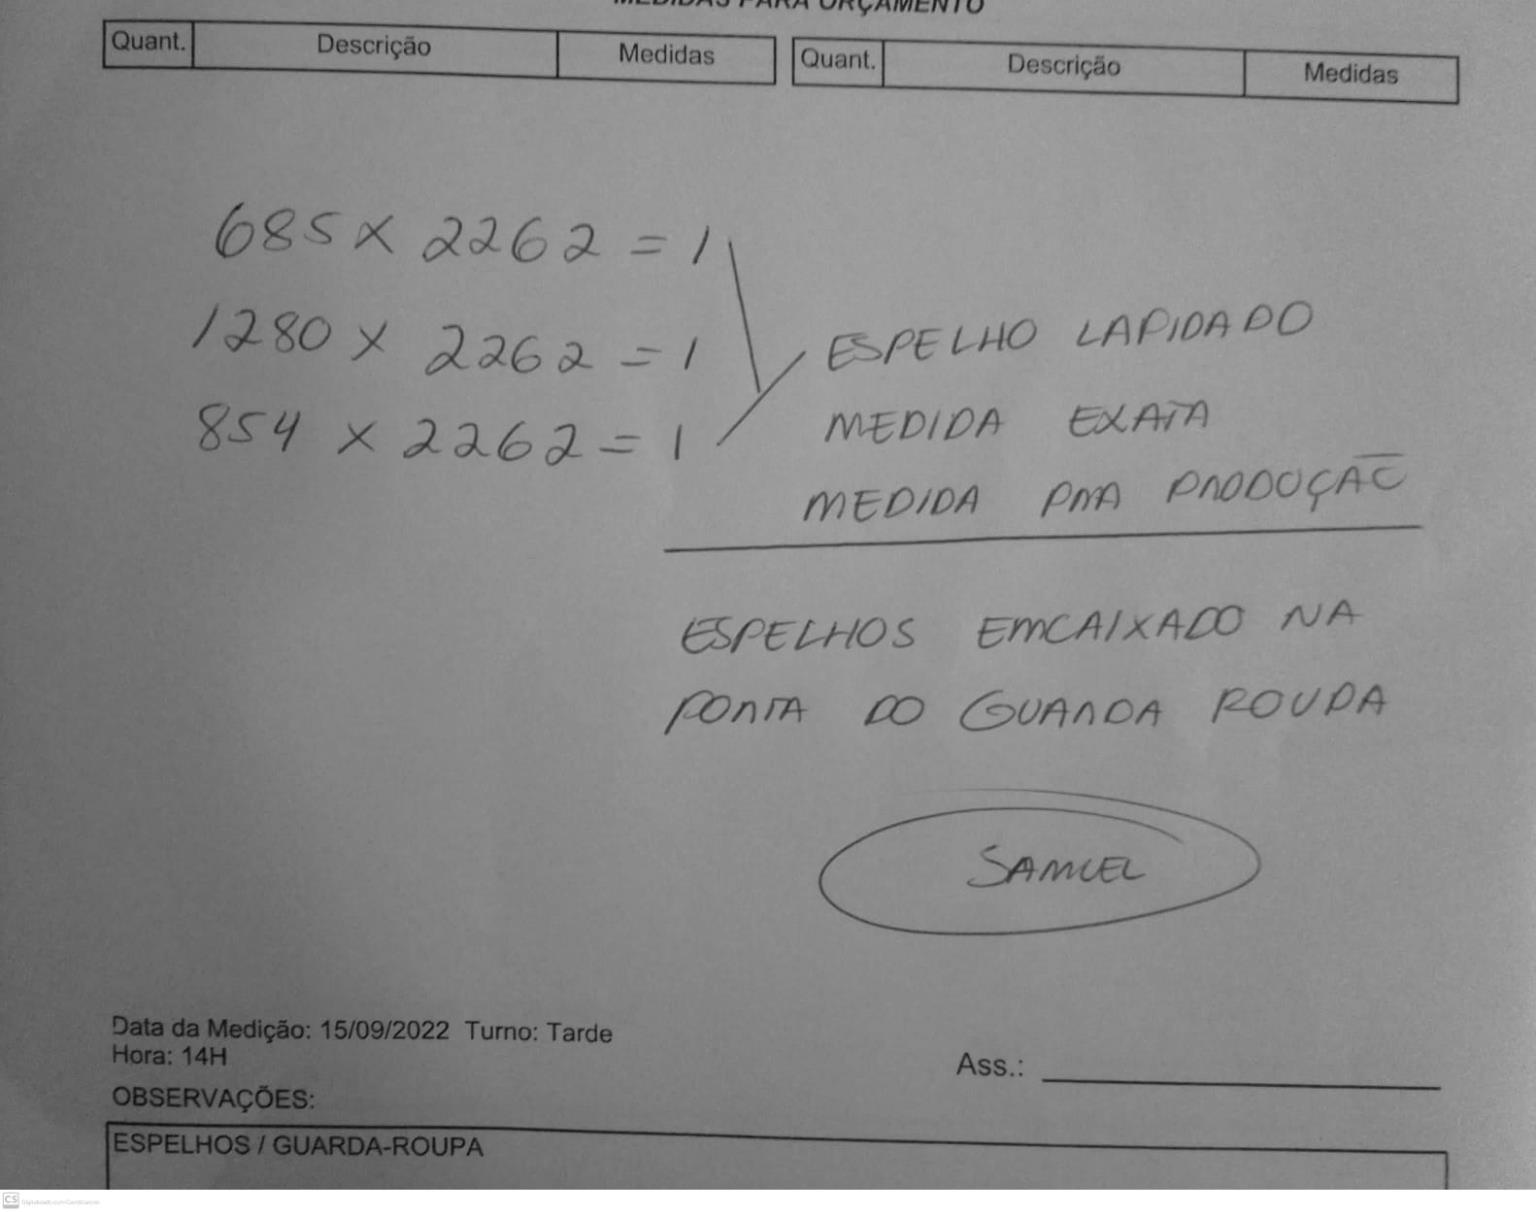 MEDIDAS PARA ORÇAMENTO
Quant. Descrição Medidas Quant. Descrição Medidas
685 x 2262 = 1
1280 x 2262 = 1
854 x 2262 = 1
ESPELHO LAPIDADO
MEDIDA EXATA
MEDIDA PRA PRODUÇÃO
ESPELHOS EMCAIXADO NA
PORTA DO GUARDA ROUPA
SAMUEL
Data da Medição: 15/09/2022 Turno: Tarde
Hora: 14H
Ass.:
OBSERVAÇÕES:
ESPELHOS / GUARDA-ROUPA
CS